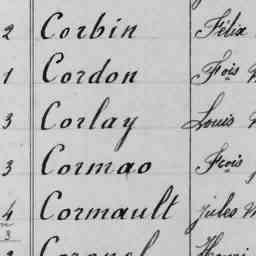 2 Corbin Félix
1 Cordon Fois
3 Corlay Louis
3 Cormao Fcois
4 Cormault Jules
3